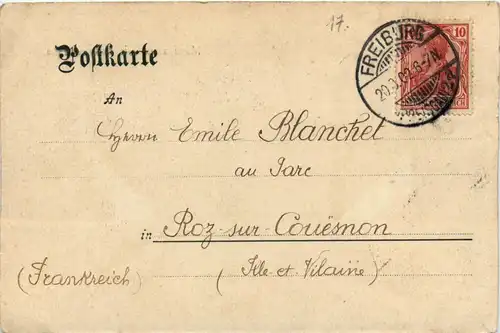 17.
FREIBURG
10
Postkarte
An
Herrn Emile Blanchet
au Parc
in Roz-sur-Couësnon
(Frankreich) (Ille-et-Vilaine)